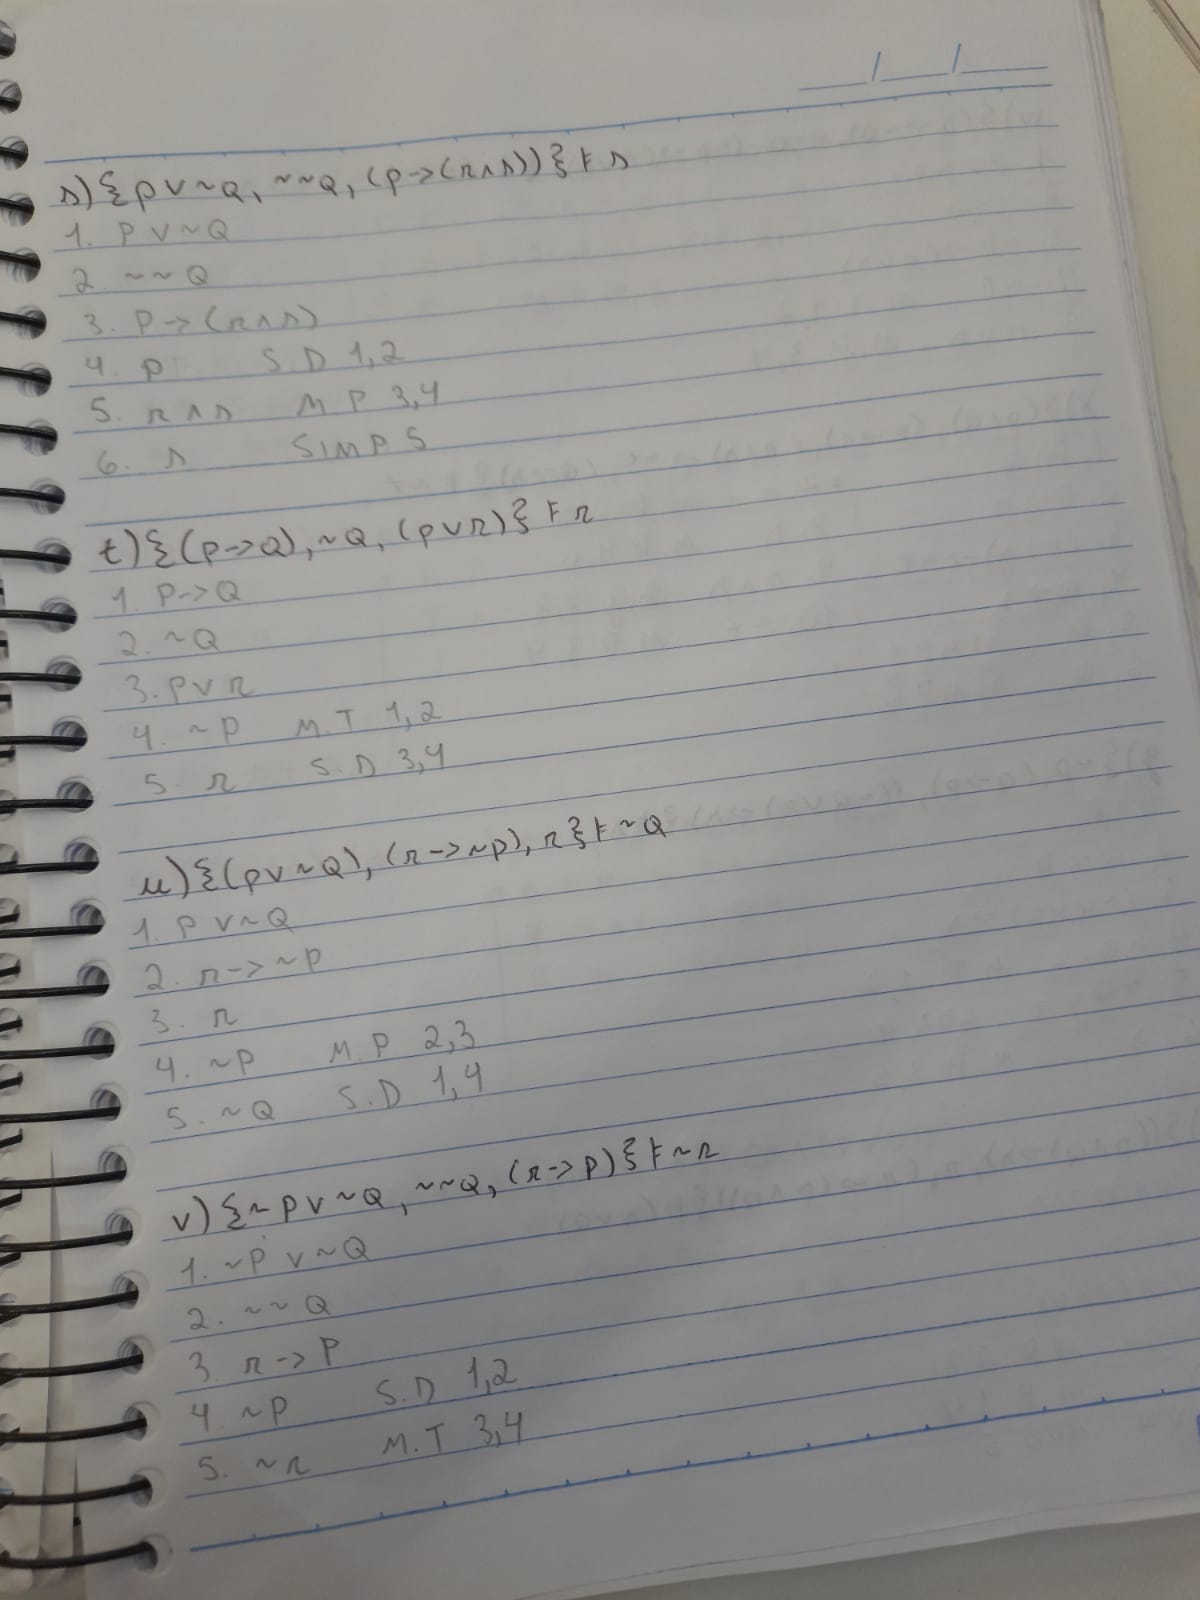 __/__/__
s) {p v ~Q, ~~Q, (p->(r∧s))} ⊧ s
1. P v ~Q
2. ~~Q
3. P->(r∧s)
4. p S.D 1,2
5. r∧s M P 3,4
6. s SIMP 5
t) {(p->Q), ~Q, (p v r)} ⊧ r
1. P->Q
2. ~Q
3. p v r
4. ~p M.T 1,2
5. r S.D 3,4
u) {(p v ~Q), (r->~p), r} ⊧ ~Q
1. P v ~Q
2. r->~p
3. r
4. ~p M.P 2,3
5. ~Q S.D 1,4
v) {~p v ~Q, ~~Q, (r->p)} ⊧ ~r
1. ~P v ~Q
2. ~~Q
3. r->P
4. ~p S.D 1,2
5. ~r M.T 3,4